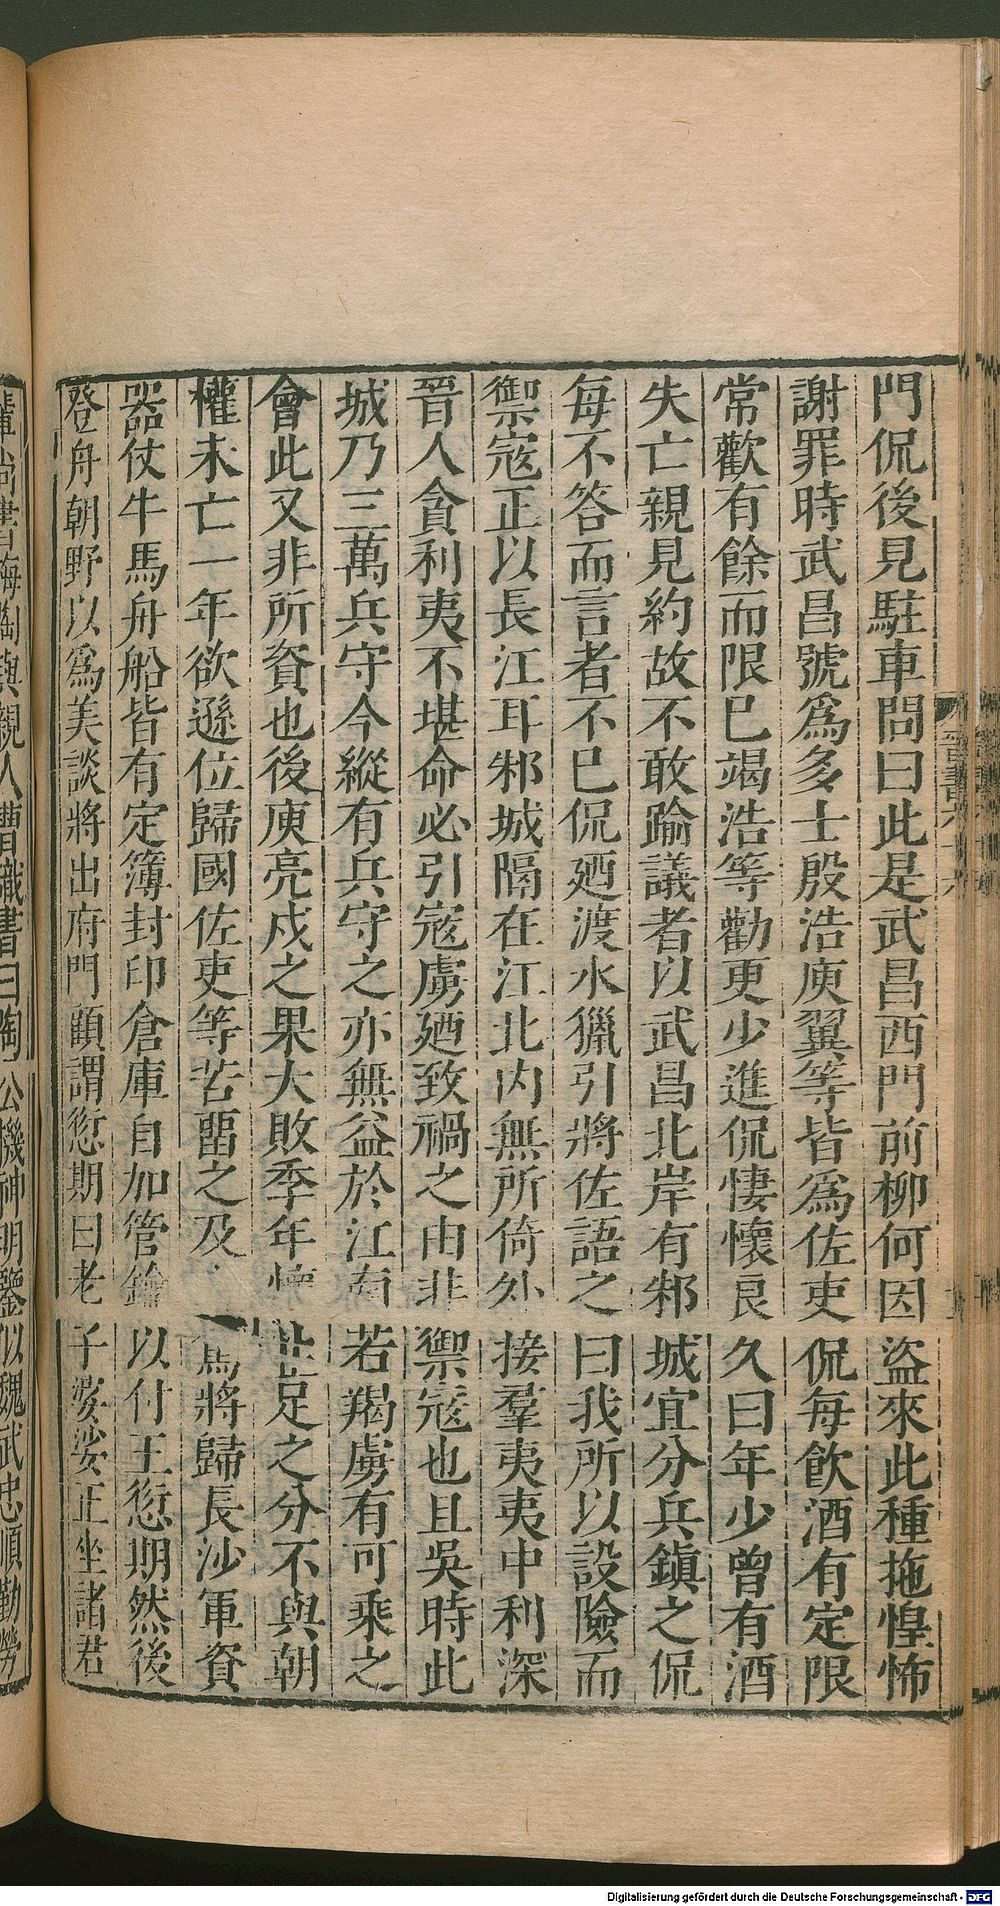 門侃後見駐車問曰此是武昌西門前柳何因盜來此種拖惶怖
謝罪時武昌號爲多士殷浩庾翼等皆爲佐吏侃每飲酒有定限
常歡有餘而限已竭浩等勸更少進侃悽懷良久曰年少曾有酒
失亡親見約故不敢踰議者以武昌北岸有邾城宜分兵鎮之侃
每不答而言者不巳侃廼渡水獵引將佐語之曰我所以設險而
禦寇正以長江耳邾城隔在江北內無所倚外接羣夷夷中利深
晉人貪利夷不堪命必引寇虜廼致禍之由非禦寇也且吳時此
城乃三萬兵守今縱有兵守之亦無益於江南若羯虜有可乘之
會此又非所資也後庾亮戍之果大敗季年懷止足之分不與朝
權未亡一年欲遜位歸國佐吏等苦畱之及將歸長沙軍資
器仗牛馬舟船皆有定簿封印倉庫自加管鑰以付王愆期然後
登舟朝野以爲美談將出府門顧謂愆期曰老子婆娑正坐諸君
輩尚書梅陶與親人曹識書曰陶公機神明鑒似魏武忠順勤勞
Digitalisierung gefördert durch die Deutsche Forschungsgemeinschaft - DFG